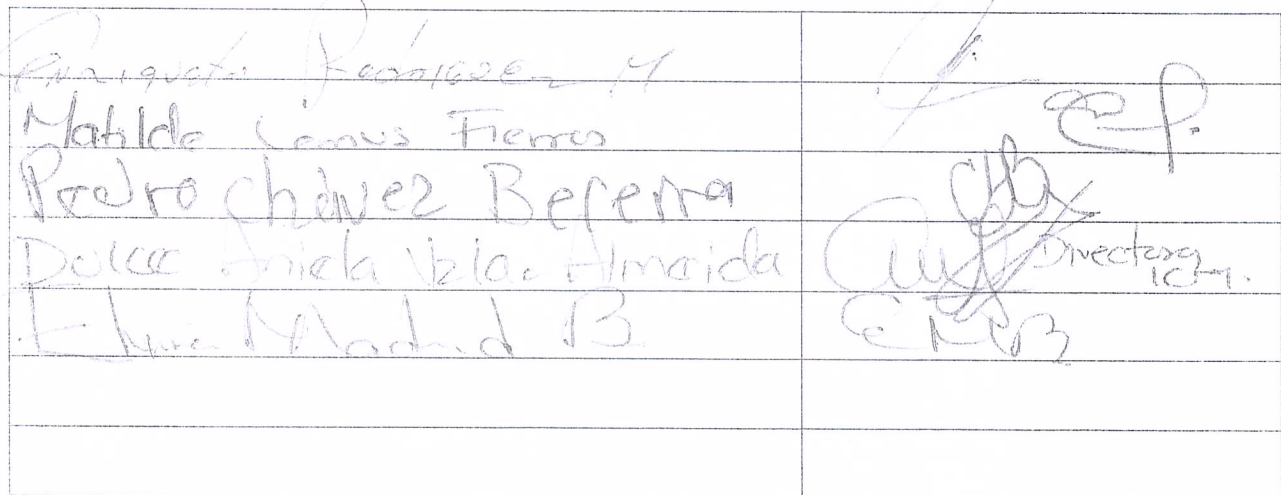 Enriqueta Rodriguez M
Matilde Lemus Fierros
Pedro Chávez Becerra
Dulce Ariela Almeida
Directora
Elvira Madrid B
EMB